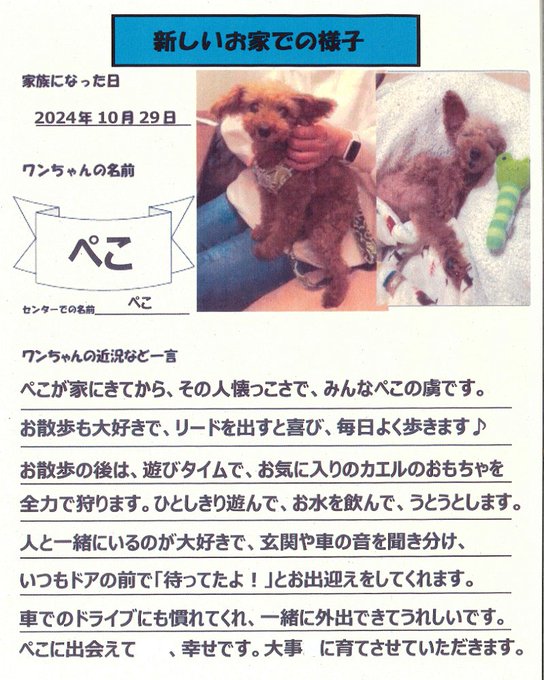 新しいお家での様子
家族になった日
2024年10月29日
ワンちゃんの名前
ぺこ
センターでの名前 ぺこ
ワンちゃんの近況など一言
ぺこが家にきてから、その人懐っこさで、みんなぺこの虜です。
お散歩も大好きで、リードを出すと喜び、毎日よく歩きます♪
お散歩の後は、遊びタイムで、お気に入りのカエルのおもちゃを
全力で狩ります。ひとしきり遊んで、お水を飲んで、うとうとします。
人と一緒にいるのが大好きで、玄関や車の音を聞き分け、
いつもドアの前で「待ってたよ！」とお出迎えをしてくれます。
車でのドライブにも慣れてくれ、一緒に外出できてうれしいです。
ぺこに出会えて 、幸せです。大事 に育てさせていただきます。